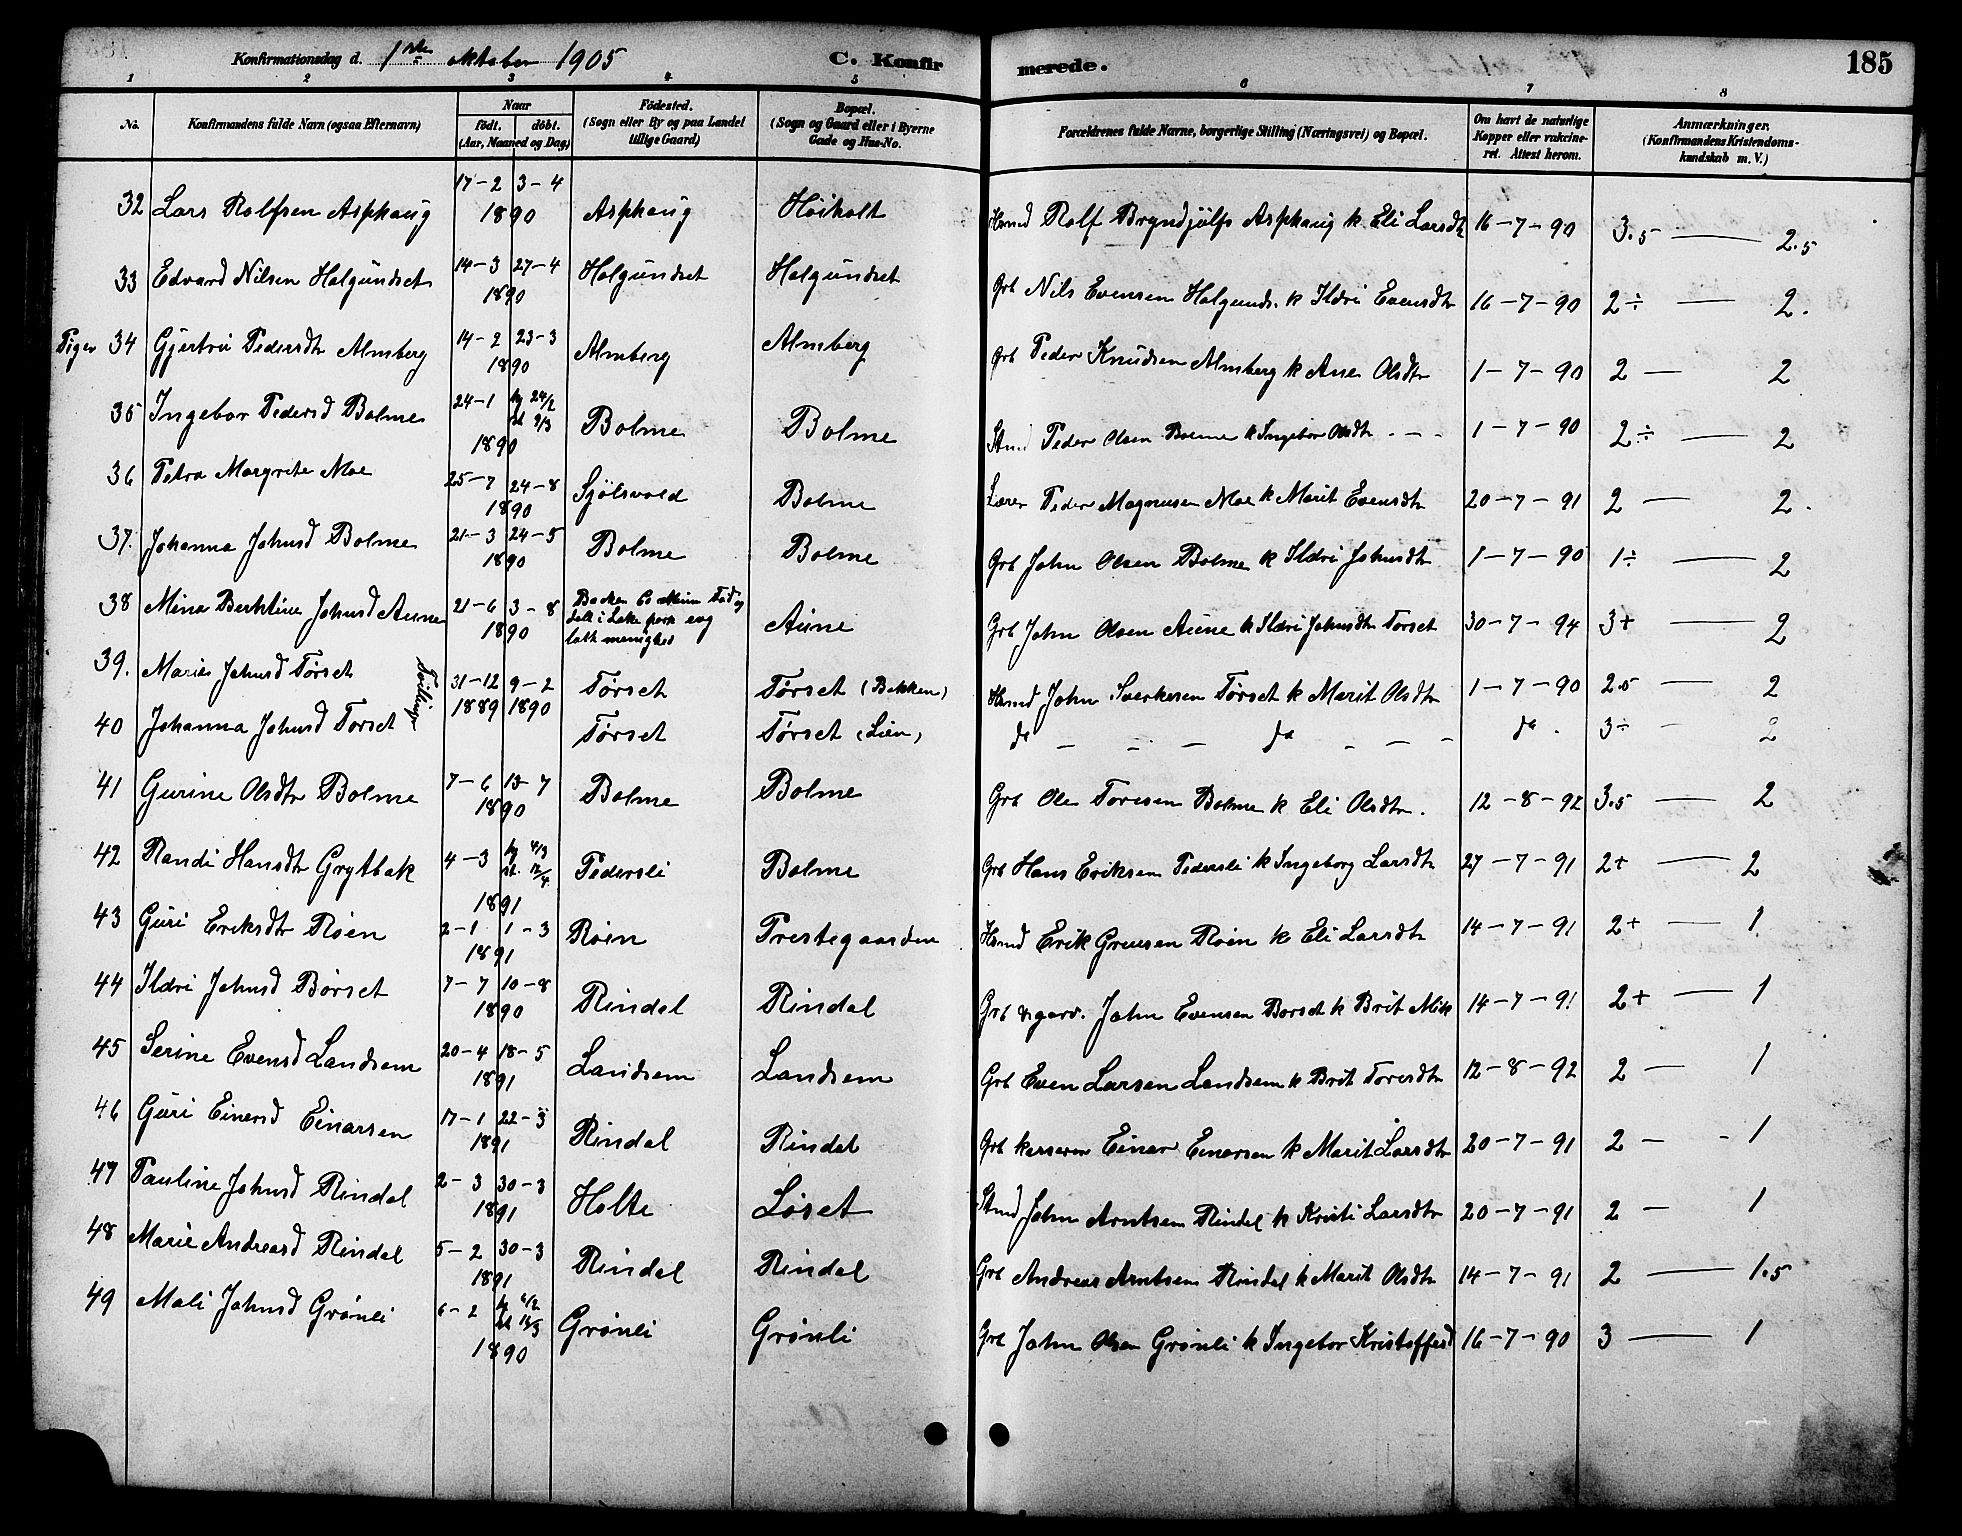 Konfirmationsdag d. 1ste oktober 1905 C. Konfirmerede. 185
1 2 3 4 5 6 7 8
No. Konfirmandens fulde Navn (ogsaa Efternavn) Naar födt. döbt. (Aar, Maaned og Dag) Födested. (Sogn eller By og paa Landet tillige Gaard) Bopæl. (Sogn og Gaard eller i Byerne Gade og Hus-No. Forældrenes fulde Navne, borgerlige Stilling (Næringsvei) og Bopæl. Om havt de naturlige Kopper eller vakcineret. Attest herom. Anmærkninger. (Konfirmandens Kristendomskundskab m. V.)
32 Lars Rolfsen Asphaug 17-2 3-4 1890 Asphaug Høiholt Hsmd Rolf Bryndjulfs Asphaug k Eli Larsdtr 16-7-90 3.5 — 2.5
33 Edvard Nilsen Halgundset 14-3 27-4 1890 Holgundset Halgundset Grb Nils Evensen Halgunds. k Ildri Evensdtr 16-7-90 2÷ — 2.
Piger 34 Gjertrú Pedersdtr Almberg 14-2 23-3 1890 Almberg Almberg Grb Peder Knudsen Almberg k Ane Olsdtr 1-7-90 2 — 2
35 Ingebor Pedersd Bolme 24-1 24/2 9/3 1890 Bolme Bolme Peder Olsen Bolme k Ingebor Olsdtr - - - 1-7-90 2÷ — 2
36 Petra Margrete Moe 25-7 24-8 1890 Sjölsvold Bolme Lærer Peder Magnusen Moe k Marit Evensdtr 20-7-91 2 — 2.
37. Johanna Johnsd Bolme 21-3 24-5 1890 Bolme Bolme Grb John Olsen Bolme k Ildri Johnsdtr 1-7-90 1÷ — 2
38 Mina Berntine Johnsd Aune 21-6 3-8 1890 Aune Grb John Olsen Aune k Ildri Johnsdtr Torset 30-7-94 3+ — 2
39. Marie Johnsd Tørset Tvilling 31-12 9-2 1889 1890 Tørset Tørset (Bakken) Hsmd John Sverkesen Tørset k Marit Olsdtr 1-7-90 2.5 — 2
40 Johanna Johnsd Torset Tørset Tørset (Lien) do - - - do - - - do. 3÷ - 2
41 Gurine Olsdtr Bolme 7-6 13-7 1890 Bolme Bolme Grb Ole Toresen Bolme k Eli Olsdtr. 12-8-92 3.5 — 2
42 Randi Hansdtr Grytbak 4-3 4/3 12/4 1891 Pedersli Bolme Grb Hans Eriksen Pedersli k Ingeborg Larsdtr 27-7-91 2+ — 2
43 Guri Eriksdtr Røen 2-1 1-3 1891 Røen Prestegaarden Hsmd Erik Røen k Eli Larsdtr 14-7-91 2+ — 1
44 Ildri Johnsd Børset 7-7 10-8 1890 Rindal Rindal Grb & garv. John Evensen Borset k Brit 14-7-91 2+ — 1
45 Serine Evensd Landsem 20-4 18-5 1891 Landsem Landsem Grb Even Larsen Landsem k Brit Toresdtr 12-8-92 2 — 1
46 Guri Einersd Einarsen 17-1 22-3 1891 Rindal Rindal Grb Einar Einarsen k Marit Larsdtr 20-7-91 2 - - 1
47 Pauline Johnsd Rindal 2-3 30-3 1891 Holte Løset John Arntsen Rindal k Kristi Larsdtr 20-7-91 2 — 1
48 Marie Andreasd Rindal 5-2 30-3 1891 Rindal Rindal Grb Andreas Arntsen Rindal k Marit Olsdtr 14-7-91 2 — 1.5
49 Mali Johnsd Grønli 6-2 1890 Grønli Grønli Grb John Olsen Grønli k Ingebor Kristoffersd 16-7-90 3 — 1